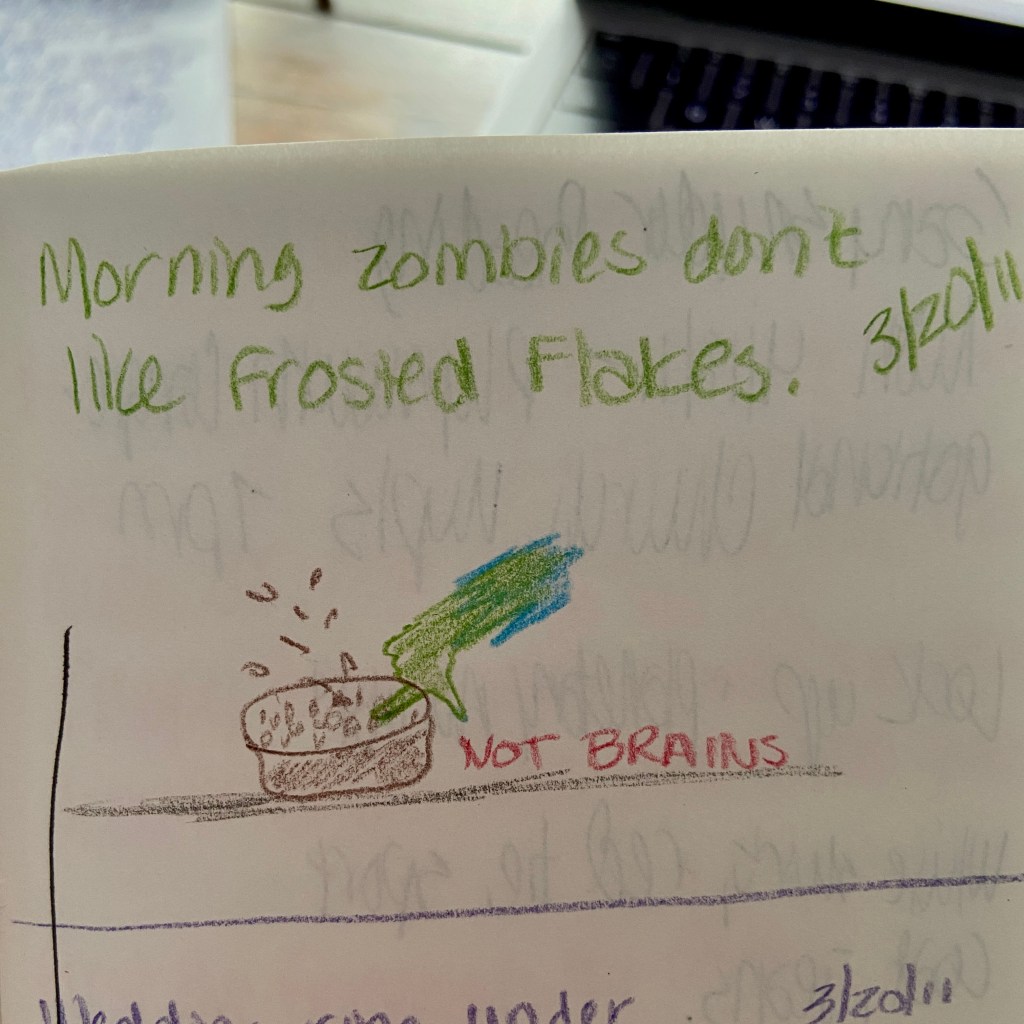 Morning zombies don't
like Frosted Flakes.
3/20/11
NOT BRAINS
Wedding rings under
3/20/11